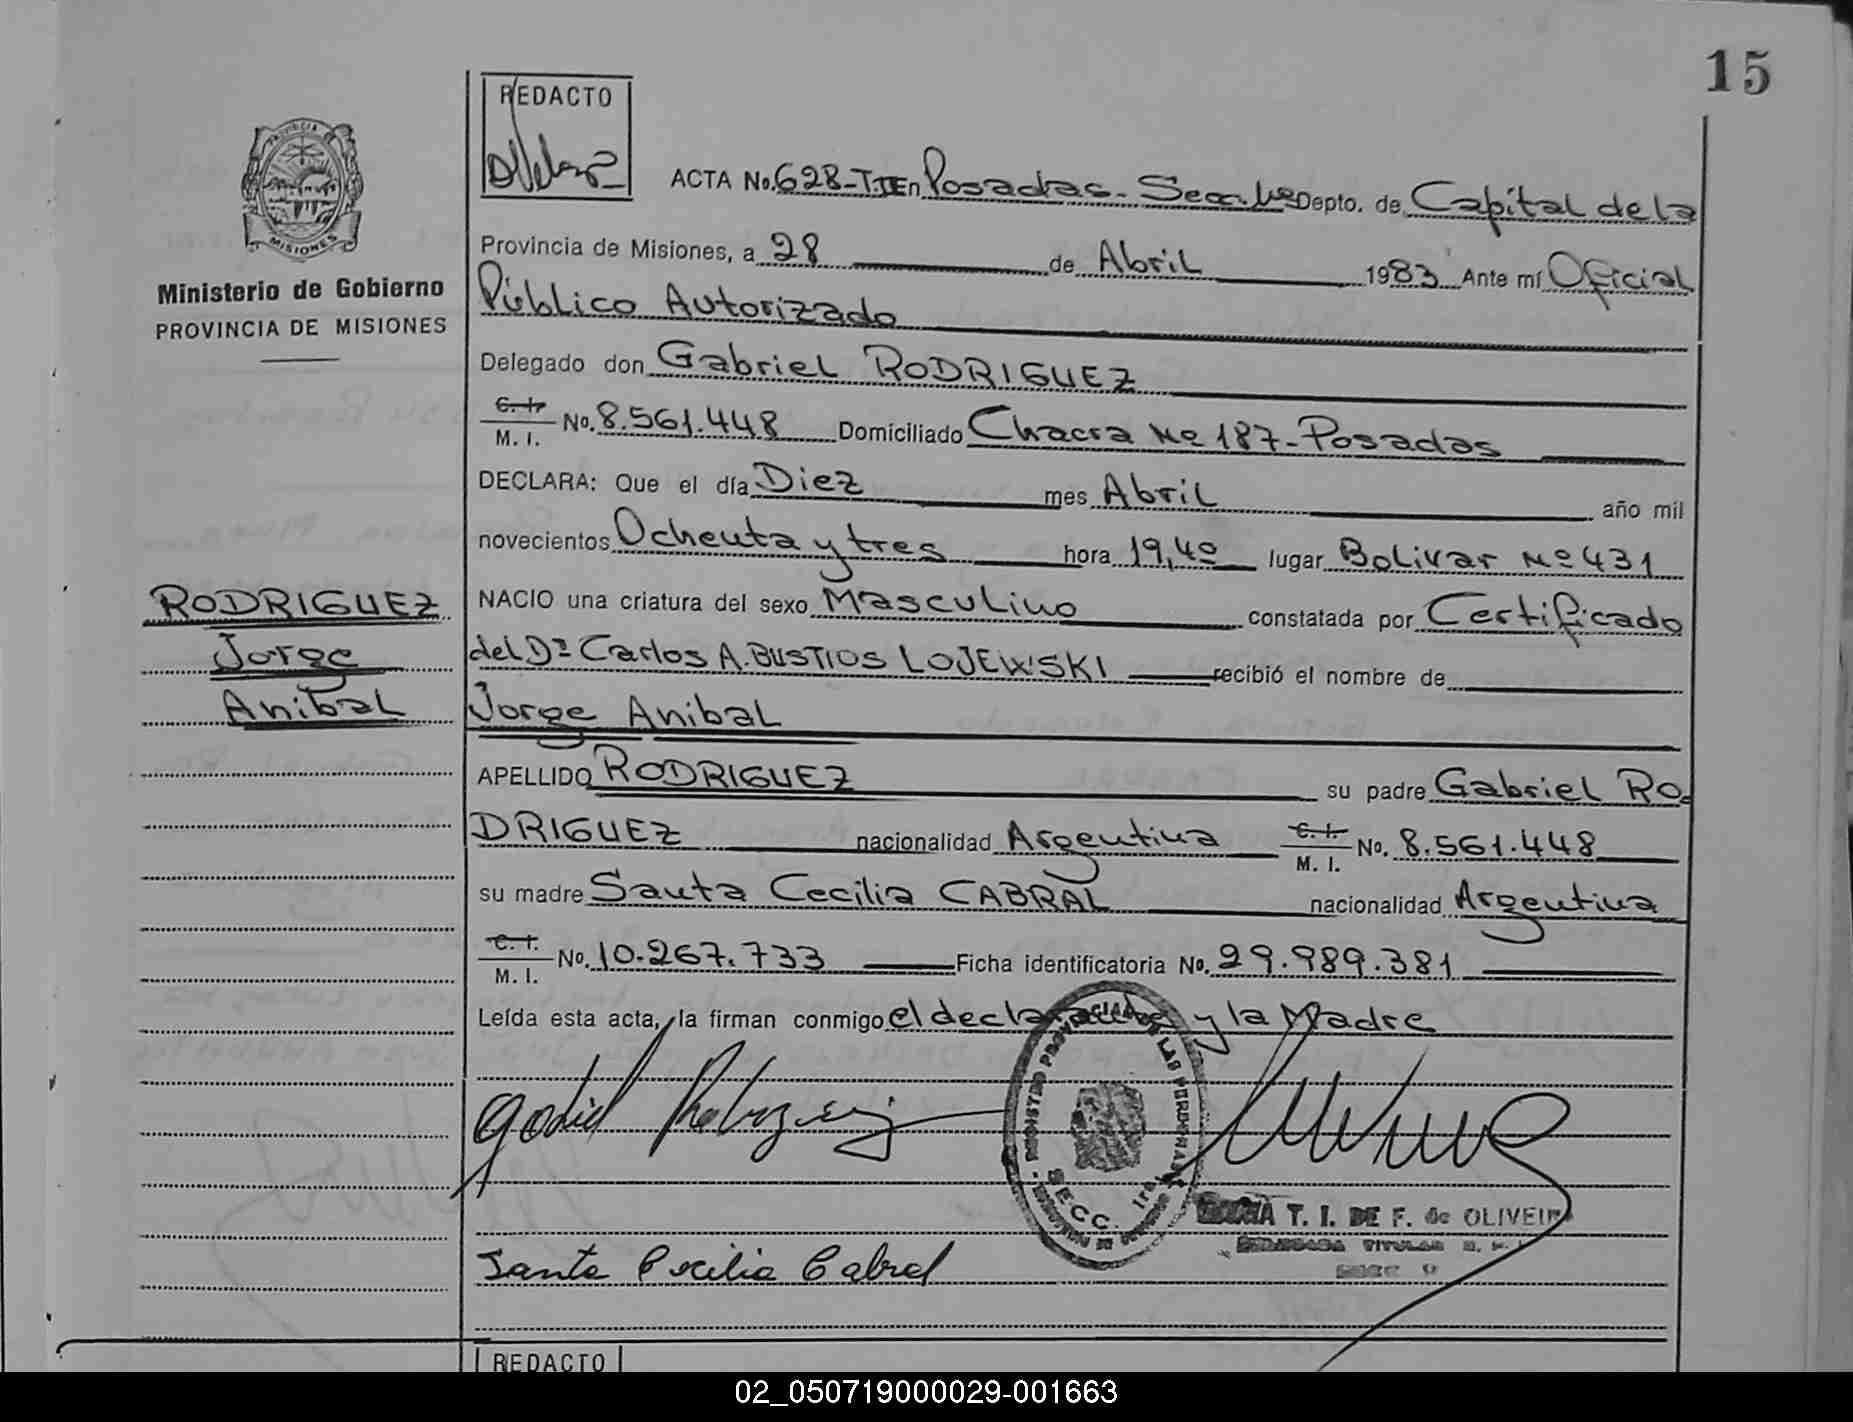 15
REDACTO
ACTA No. 628-T.II En Posadas - Secc. 1ra Depto. de Capital de la
Provincia de Misiones, a 28 de Abril 1983 Ante mí Oficial
Público Autorizado
Delegado don Gabriel RODRIGUEZ
C. I. M. I. No. 8.561.448 Domiciliado Chacra Nº 187 - Posadas
DECLARA: Que el día Diez mes Abril año mil
novecientos Ochenta y tres hora 19,40 lugar Bolivar Nº 431
NACIO una criatura del sexo Masculino constatada por Certificado
del Dr Carlos A. BUSTIOS LOJEWSKI recibió el nombre de
Jorge Anibal
APELLIDO RODRIGUEZ su padre Gabriel RO
DRIGUEZ nacionalidad Argentina C. I. M. I. No. 8.561.448
su madre Santa Cecilia CABRAL nacionalidad Argentina
C. I. M. I. No. 10.267.733 Ficha identificatoria No. 29.989.381
Leída esta acta, la firman conmigo el declarante y la Madre
Santa Cecilia Cabral
REGISTRO PROVINCIAL DE LAS PERSONAS
SECC. 1ra
T. I. DE F. de OLIVEIRA
TITULAR
PROVINCIA
MISIONES
Ministerio de Gobierno
PROVINCIA DE MISIONES
RODRIGUEZ
Jorge
Anibal
REDACTO
02_050719000029-001663